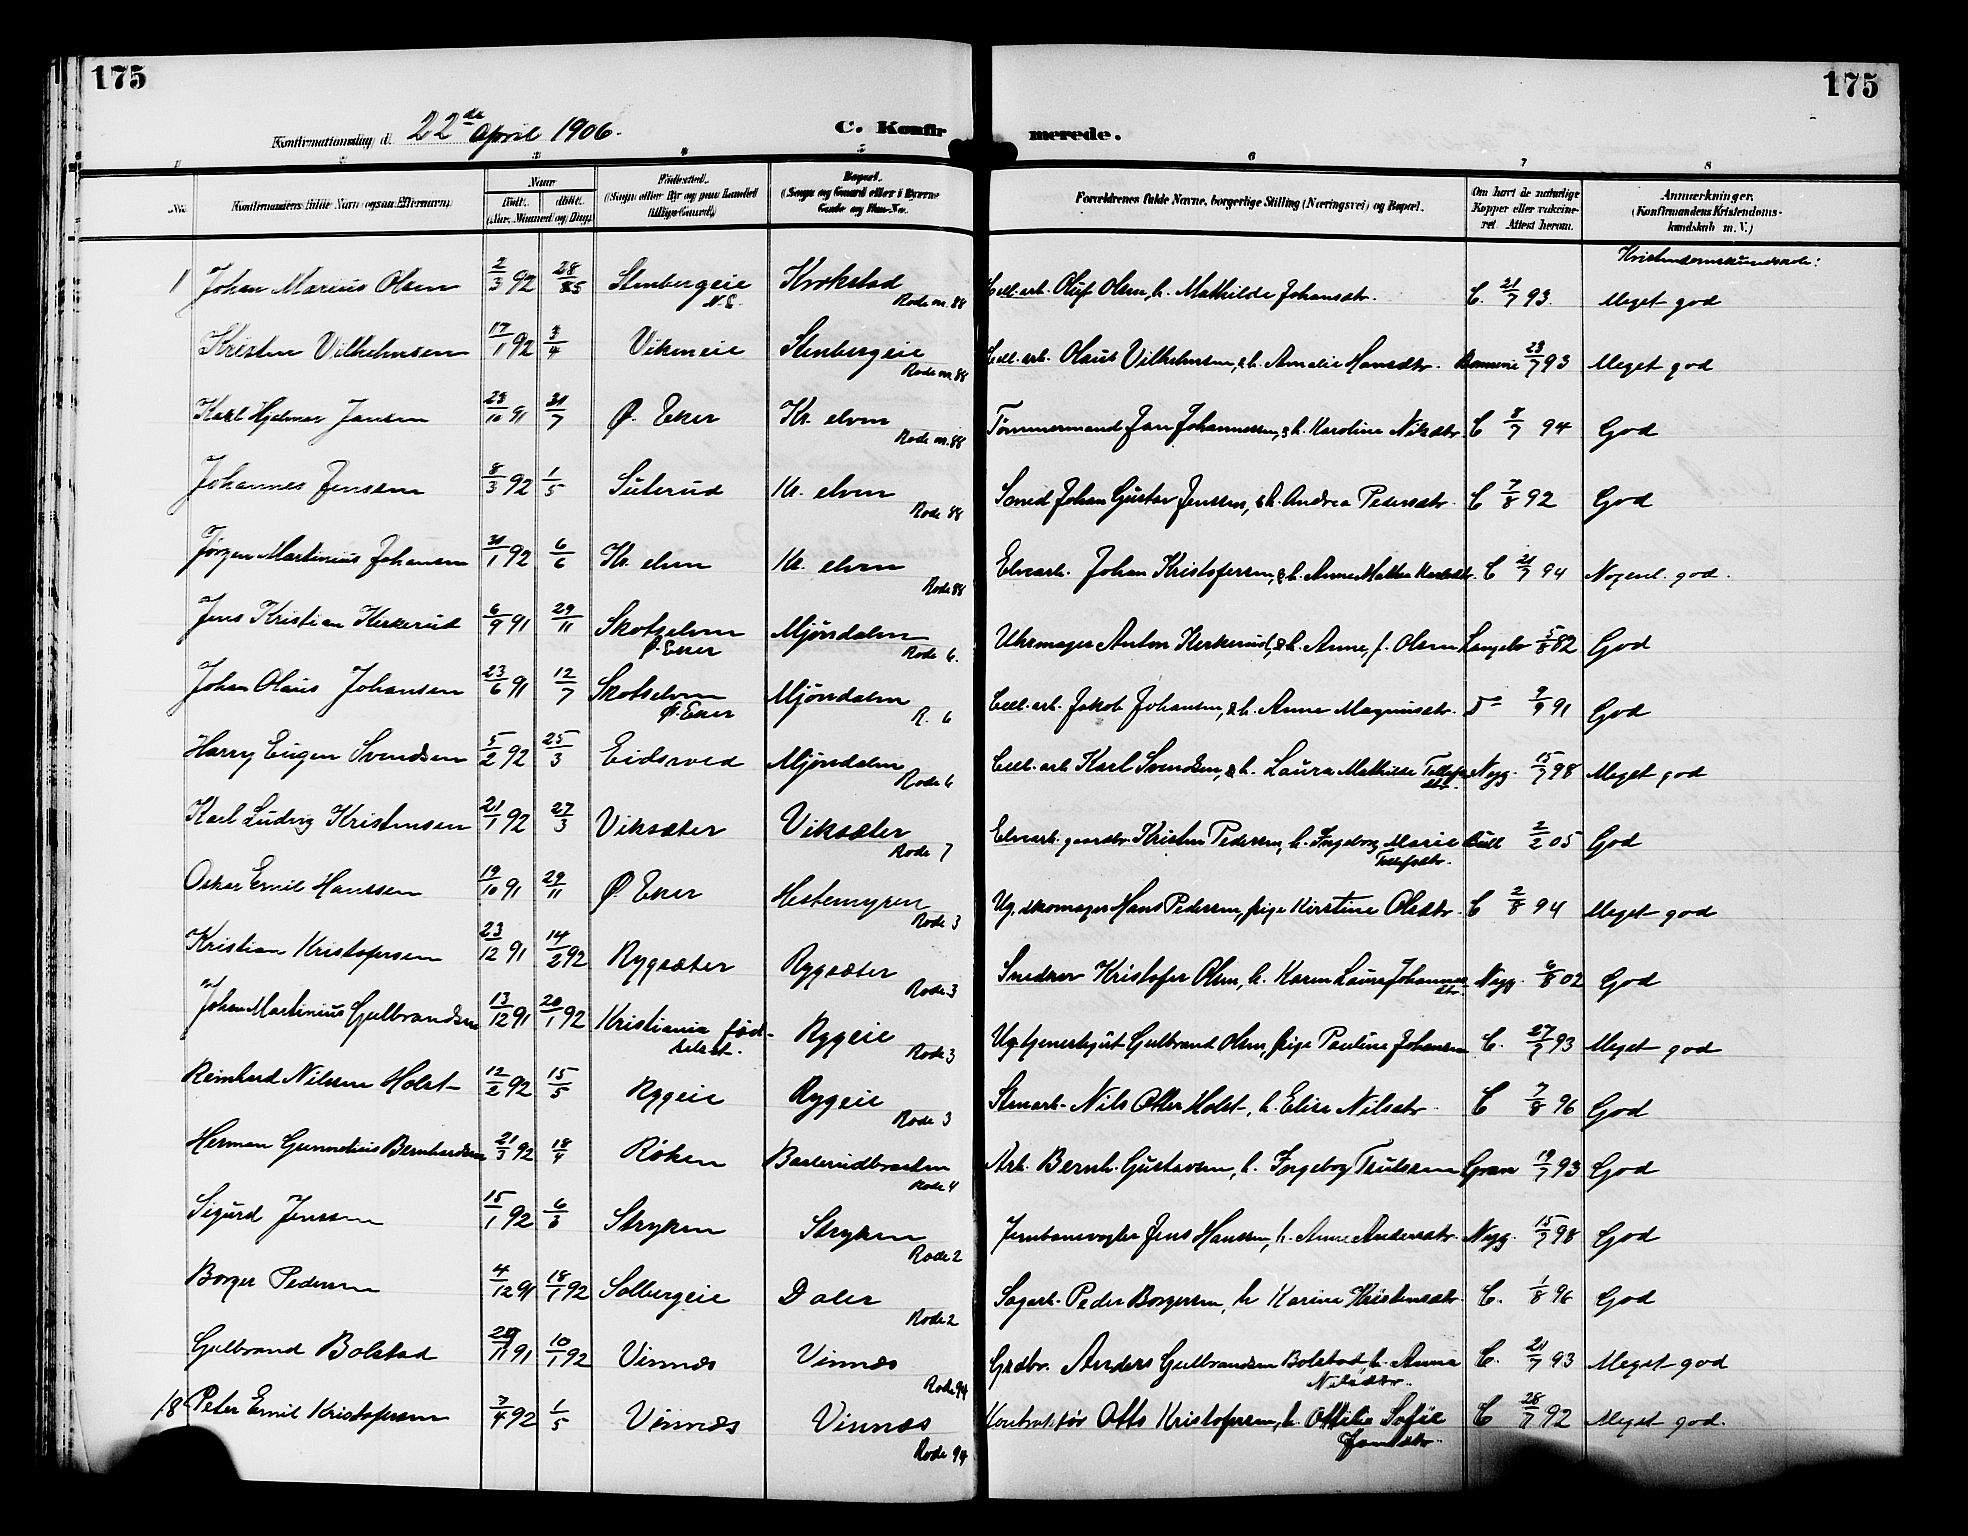 175
175
Konfirmationsdag d. 22de April 1906.
C. Konfirmerede.
1 2 3 4 5 6 7 8
No. Konfirmandens fulde Navn (ogsaa Efternavn). Naar født. døbt. (Aar, Maaned og Dag). Fødested. (Sogn eller By og paa Landet tillige Gaard). Bopæl. (Sogn og Gaard eller i Byerne Gade og Hus-No. Forældrenes fulde Navne, borgerlige Stilling (Næringsvei) og Bopæl. Om havt de naturlige Kopper eller vakcineret. Attest herom. Anmærkninger. (Konfirmandens Kristendomskundskab m. V.)
Kristendomskundskab:
1 Johan Marius Olsen 2/3 92 28/5 Stenbergeie N.E. Krokstad Rode nr. 88 Cell. arb. Oluf Olsen, h. Mathilde Johansdtr. C. 21/7 93. Meget god
Kristen Vilhelmsen 17/1 92 3/4 Vikeneie Stenbergeie Rode nr. 88 Cell. arb. Olaus Vilhelmsen, & h. Amalie Hansdtr. 23/7 93 Meget god
Karl Hjelmar Jansen 23/10 91 31/7 Ø. Eker Kr. elven Rode nr. 88 Tømmermand Jan Johannessen, & h. Karoline Nilsdtr. C 8/7 94 God
Johannes Jenssen 8/3 92 1/5 Suterud Kr. elven Rode 88 Smed Johan Gustav Jenssen, & h. Andrea Pedersdtr. C 7/8 92 God
Jørgen Martinius Johansen 31/1 92 6/6 Kr. elven Kr. elven Rode 88 Elvearb. Johan Kristofersen, & h. Anne Mathea C 21/7 94 Nogenl. god.
Jens Kristian Kerkerud 6/9 91 29/11 Skotselven Ø. Eker Mjøndalen Rode 6. Uhrmager Anton Kerkerud, & h. Anne, f. Olsen Langebo 5/8 82 God
Johan Olaus Johansen 23/6 91 12/7 Skotselven Ø. Eker Mjøndalen R. 6 Cell. arb. Jakob Johansen, & h. Anne Magnusdtr. Do 9/9 91 God
Harry Eugen Svendsen 5/2 92 25/3 Eidsvold Mjøndalen Rode 6 Cell. arb. Karl Svendsen, & h. Laura Mathilde Tollefsdtr. Nyg. 15/7 98 Meget god
Karl Ludvig Kristensen 21/1 92 27/3 Viksæter Viksæter Rode 7 Elvearb. gaardbr. Kristen Pedersen, h. Ingeborg Marie Tollefsdtr. Bull 2/2 05 God
Oskar Emil Hanssen 19/10 91 29/11 Ø. Eker Hestemyren Rode 3 Ug. skomager Hans Pedersen, pige Kirstine Olsdtr. C 2/8 94 Meget god
Kristian Kristofersen 23/12 91 14/2 92 Rygsæter Rygsæter Rode 3 Snedker Kristofer Olsen, h. Karen Laura Johannesdtr. Nyg. 6/8 02 God
Johan Martinius Gulbrandsen 13/12 91 20/1 92 Kristiania fødselsst. Rygeie Rode 3 Ug. tjenestegut Gulbrand Olsen, pige Pauline Johansen C. 27/7 93 Meget god
Reinhard Nilssen Holst 12/2 92 15/5 Rygeie Rygeie Rode 3 Stenarb. Nils Otter Holst, h. Elise Nilsdtr. C 7/8 96 God
Herman Gunnelius Bernhardsen 21/3 92 18/4 Røken Basterudbraaten Rode 4 Arb. Bernh. Gustavsen, h. Ingeborg Trulssen Gran 19/7 93 God
Sigurd Jenssen 15/1 92 6/3 Stryken Stryken Rode 2 Jernbanevogter Jens Hanssen, h. Anne Andersdtr. Nyg. 15/7 98 God
Borger Pedersen 4/12 91 18/1 92 Solbergeie Daler Rode 2 Sagarb. Peder Borgersen, h. Karine Kristensdtr. C. 1/8 96 God
Gulbrand Bolstad 20/11 91 10/1 92 Vinnæs Vinnæs Rode 94 Grdbr. Anders Gulbrandsen Bolstad, h. Anna Nilsdtr. C. 21/7 93 Meget god
18 Peter Emil Kristofersen 7/4 92 1/5 Vinnæs Vinnæs Rode 94 Kontrollør Otto Kristofersen, h. Ottilie Sofie Jensdtr. C 28/7 92 Meget god.